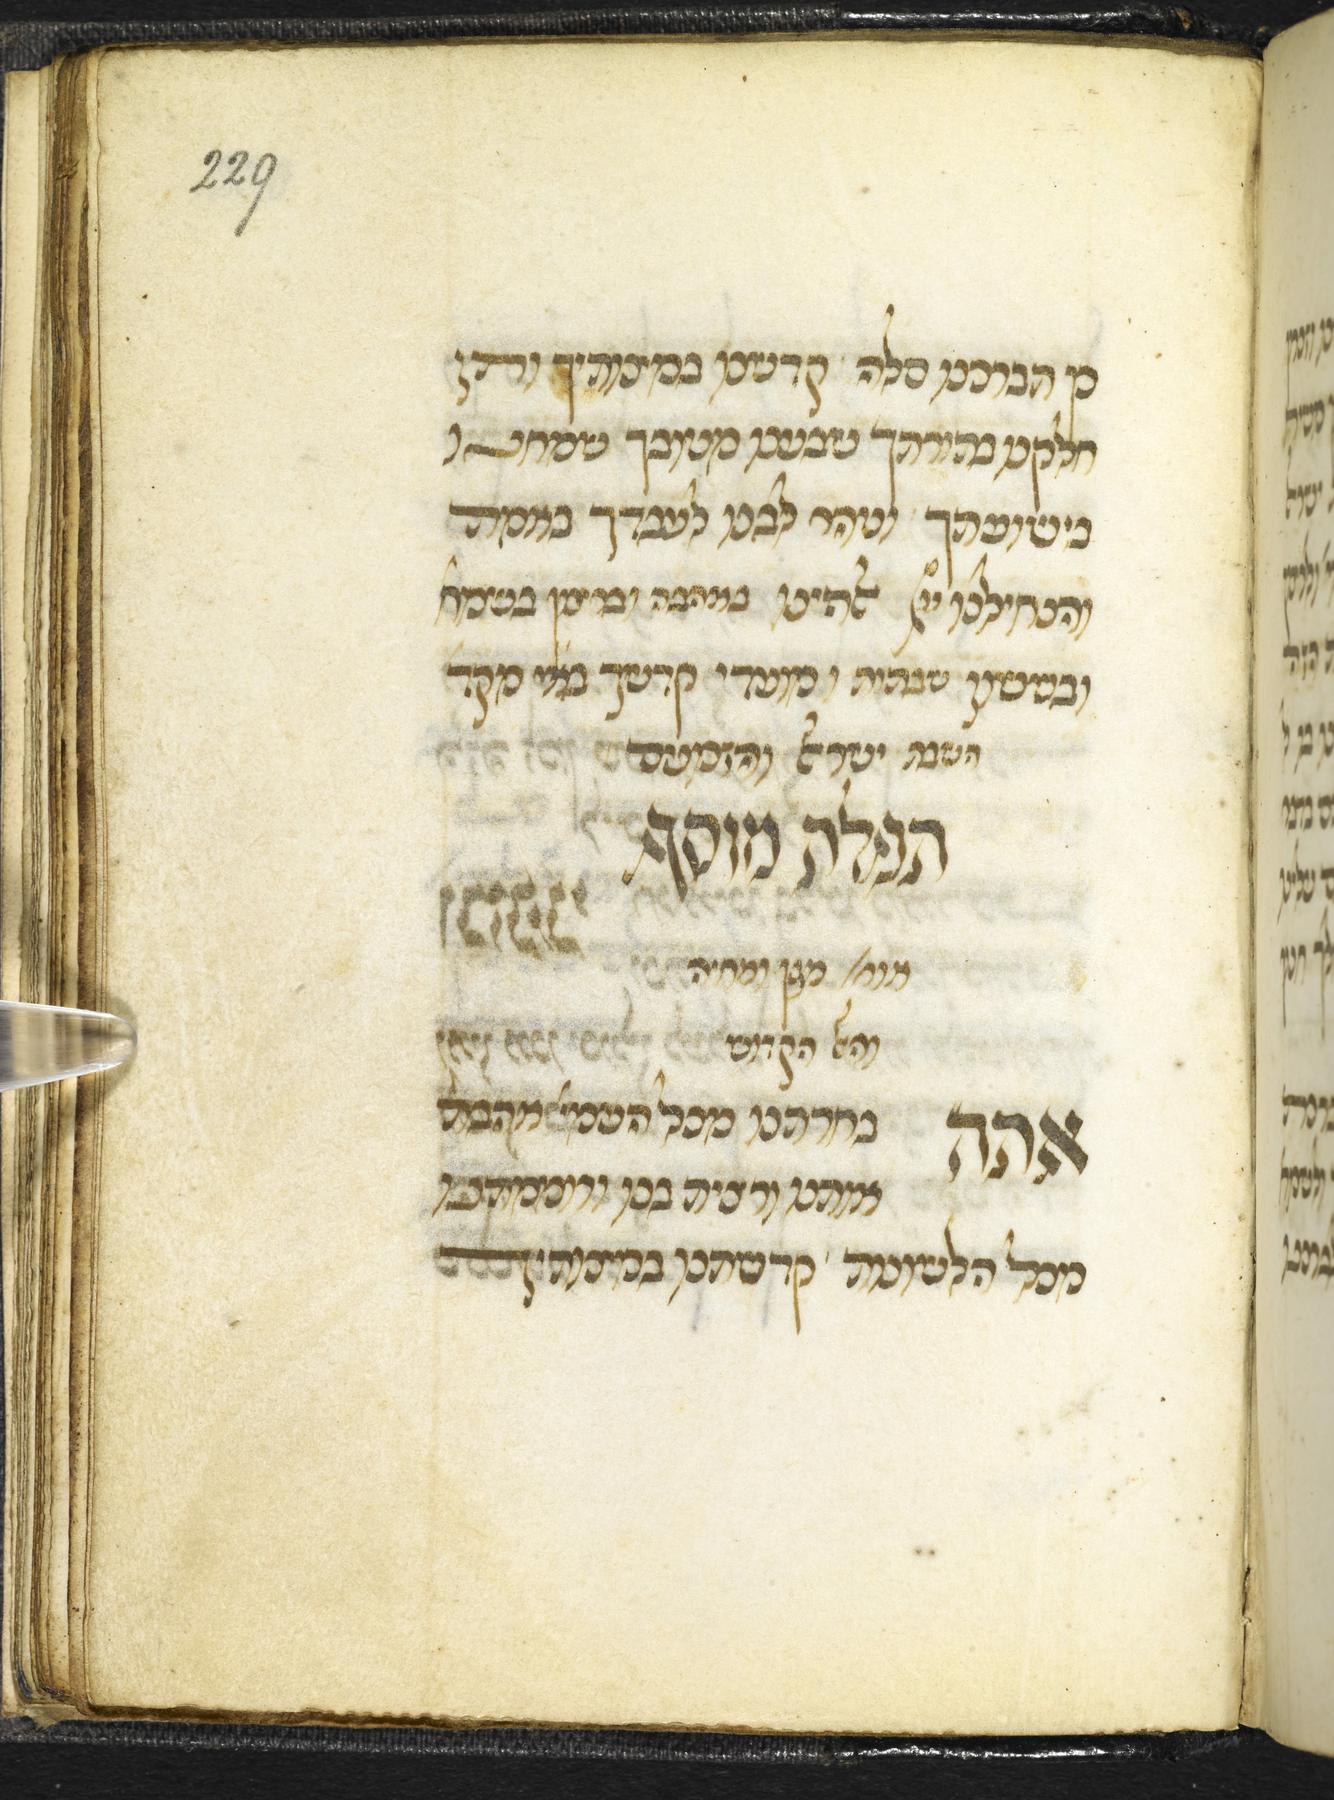 229
כן תברכנו סלה קדשנו במצותיך ותן
חלקנו בתורתך שבענו מטובך שמחנו
בישועתך וטהר לבנו לעבדך באמת
והנחילנו ייי אלהינו באהבה וברצון בשמח
ובששון שבתות ומועדי קדשך מקד
השבת ישראל והזמנים
תפלת מוסף
מגן ומחיה
והאל הקדוש
אתה בחרתנו מכל העמים אהבת
אותנו ורצית בנו ורוממתנו
מכל הלשונות קדשתנו במצותיך